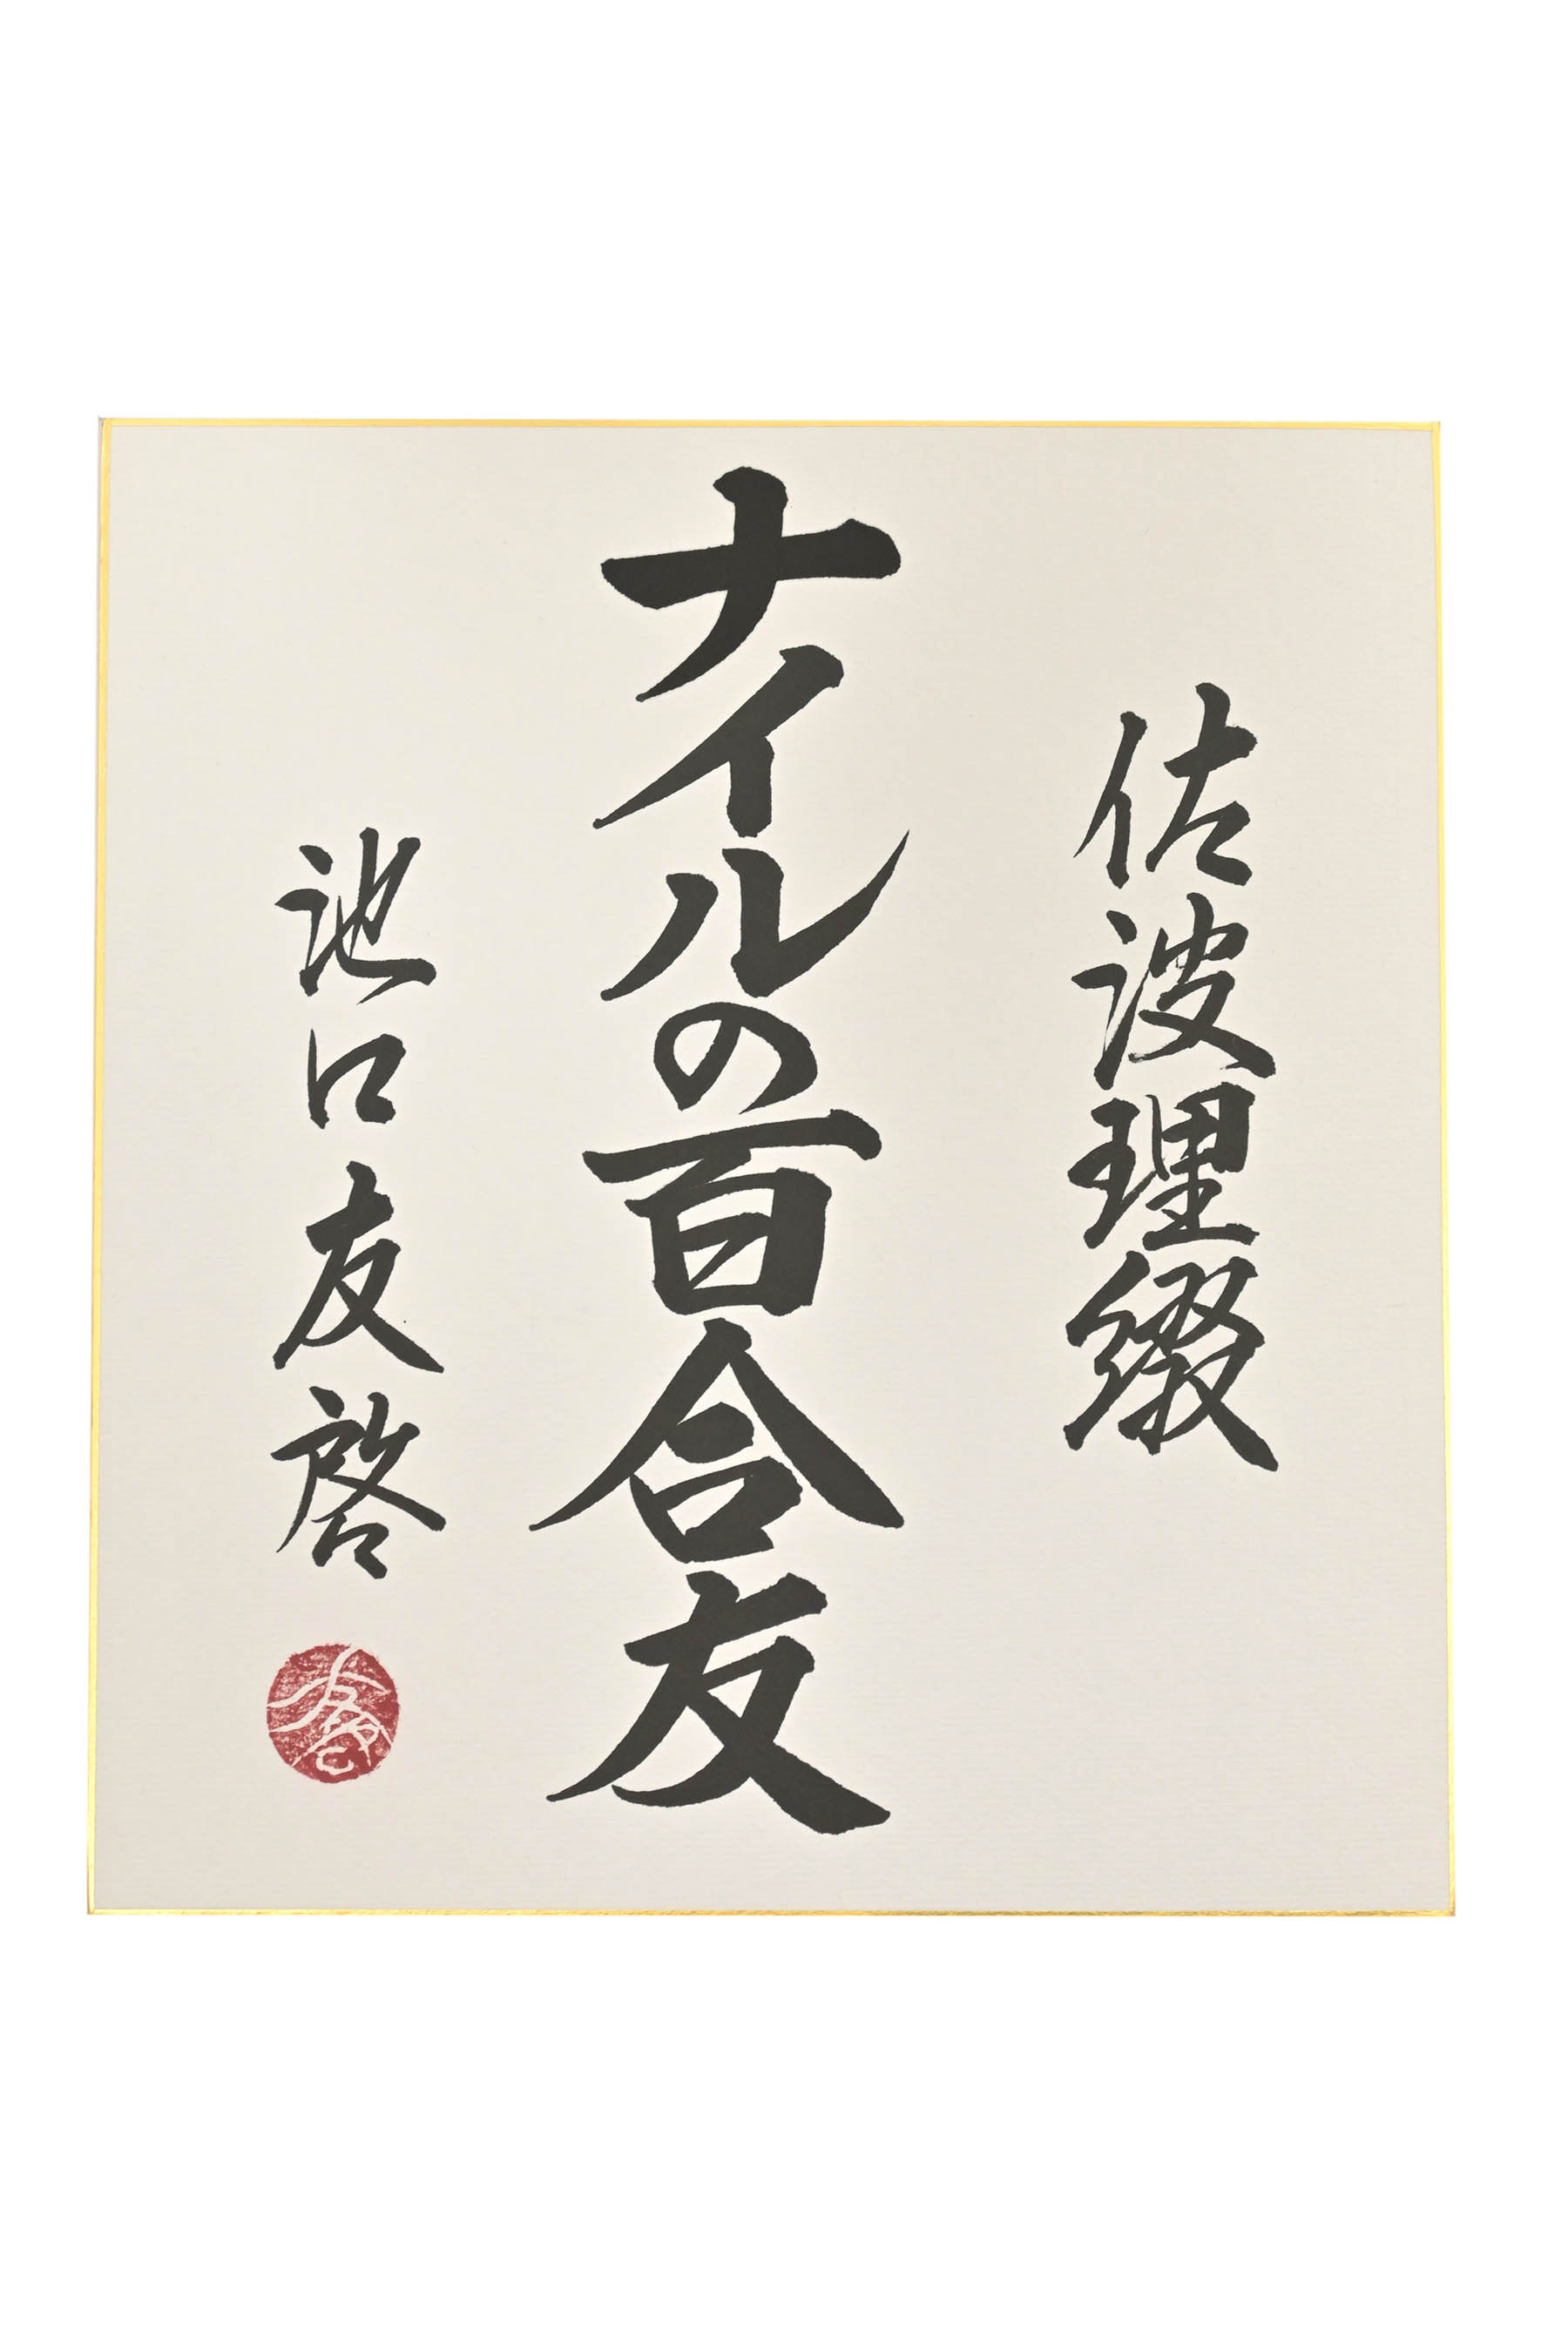 佐波理綴
ナイルの百合友
池口友啓